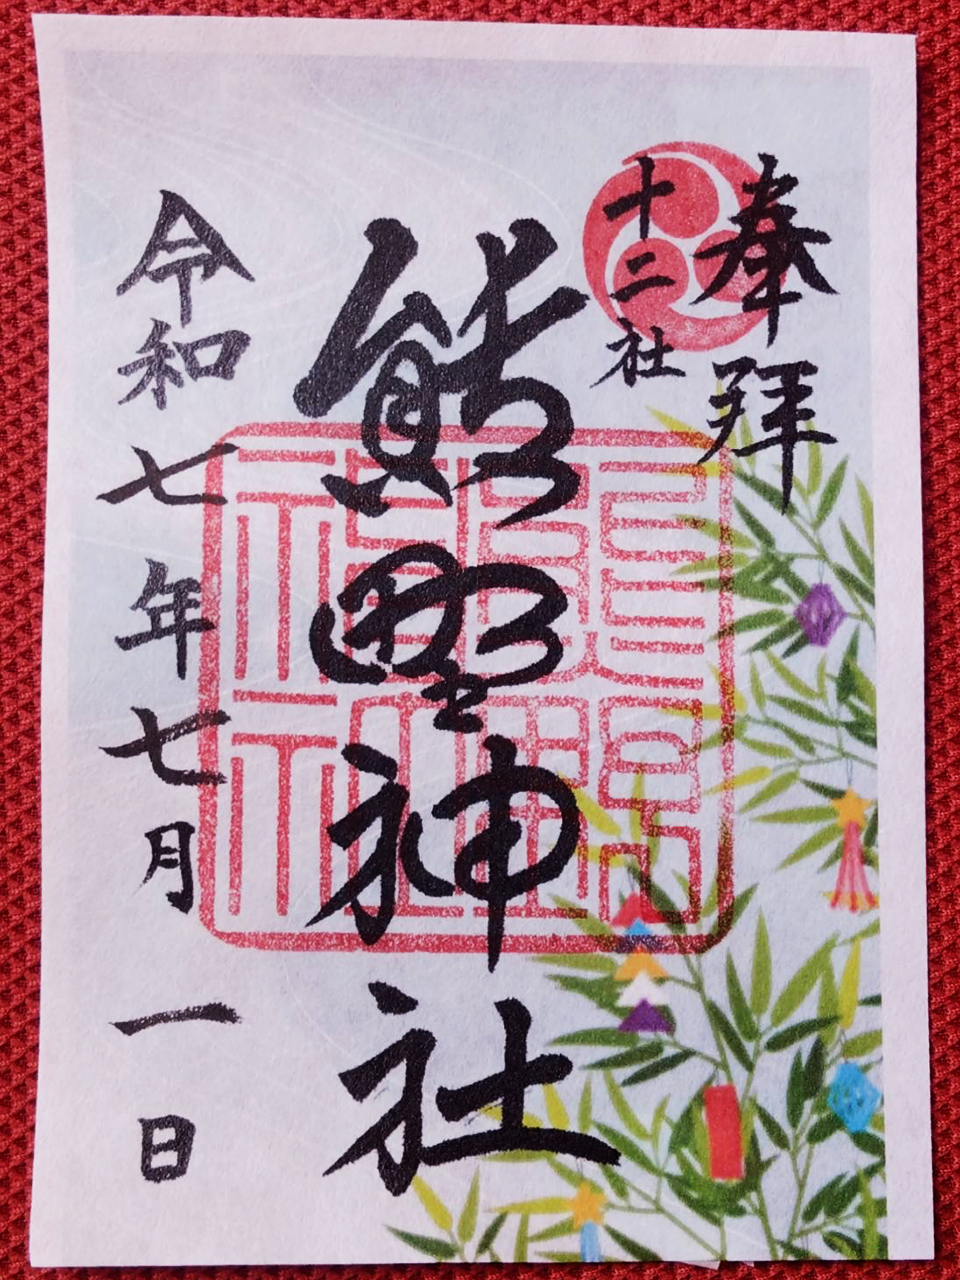 奉拝
十二社
熊野神社
令和七年七月一日